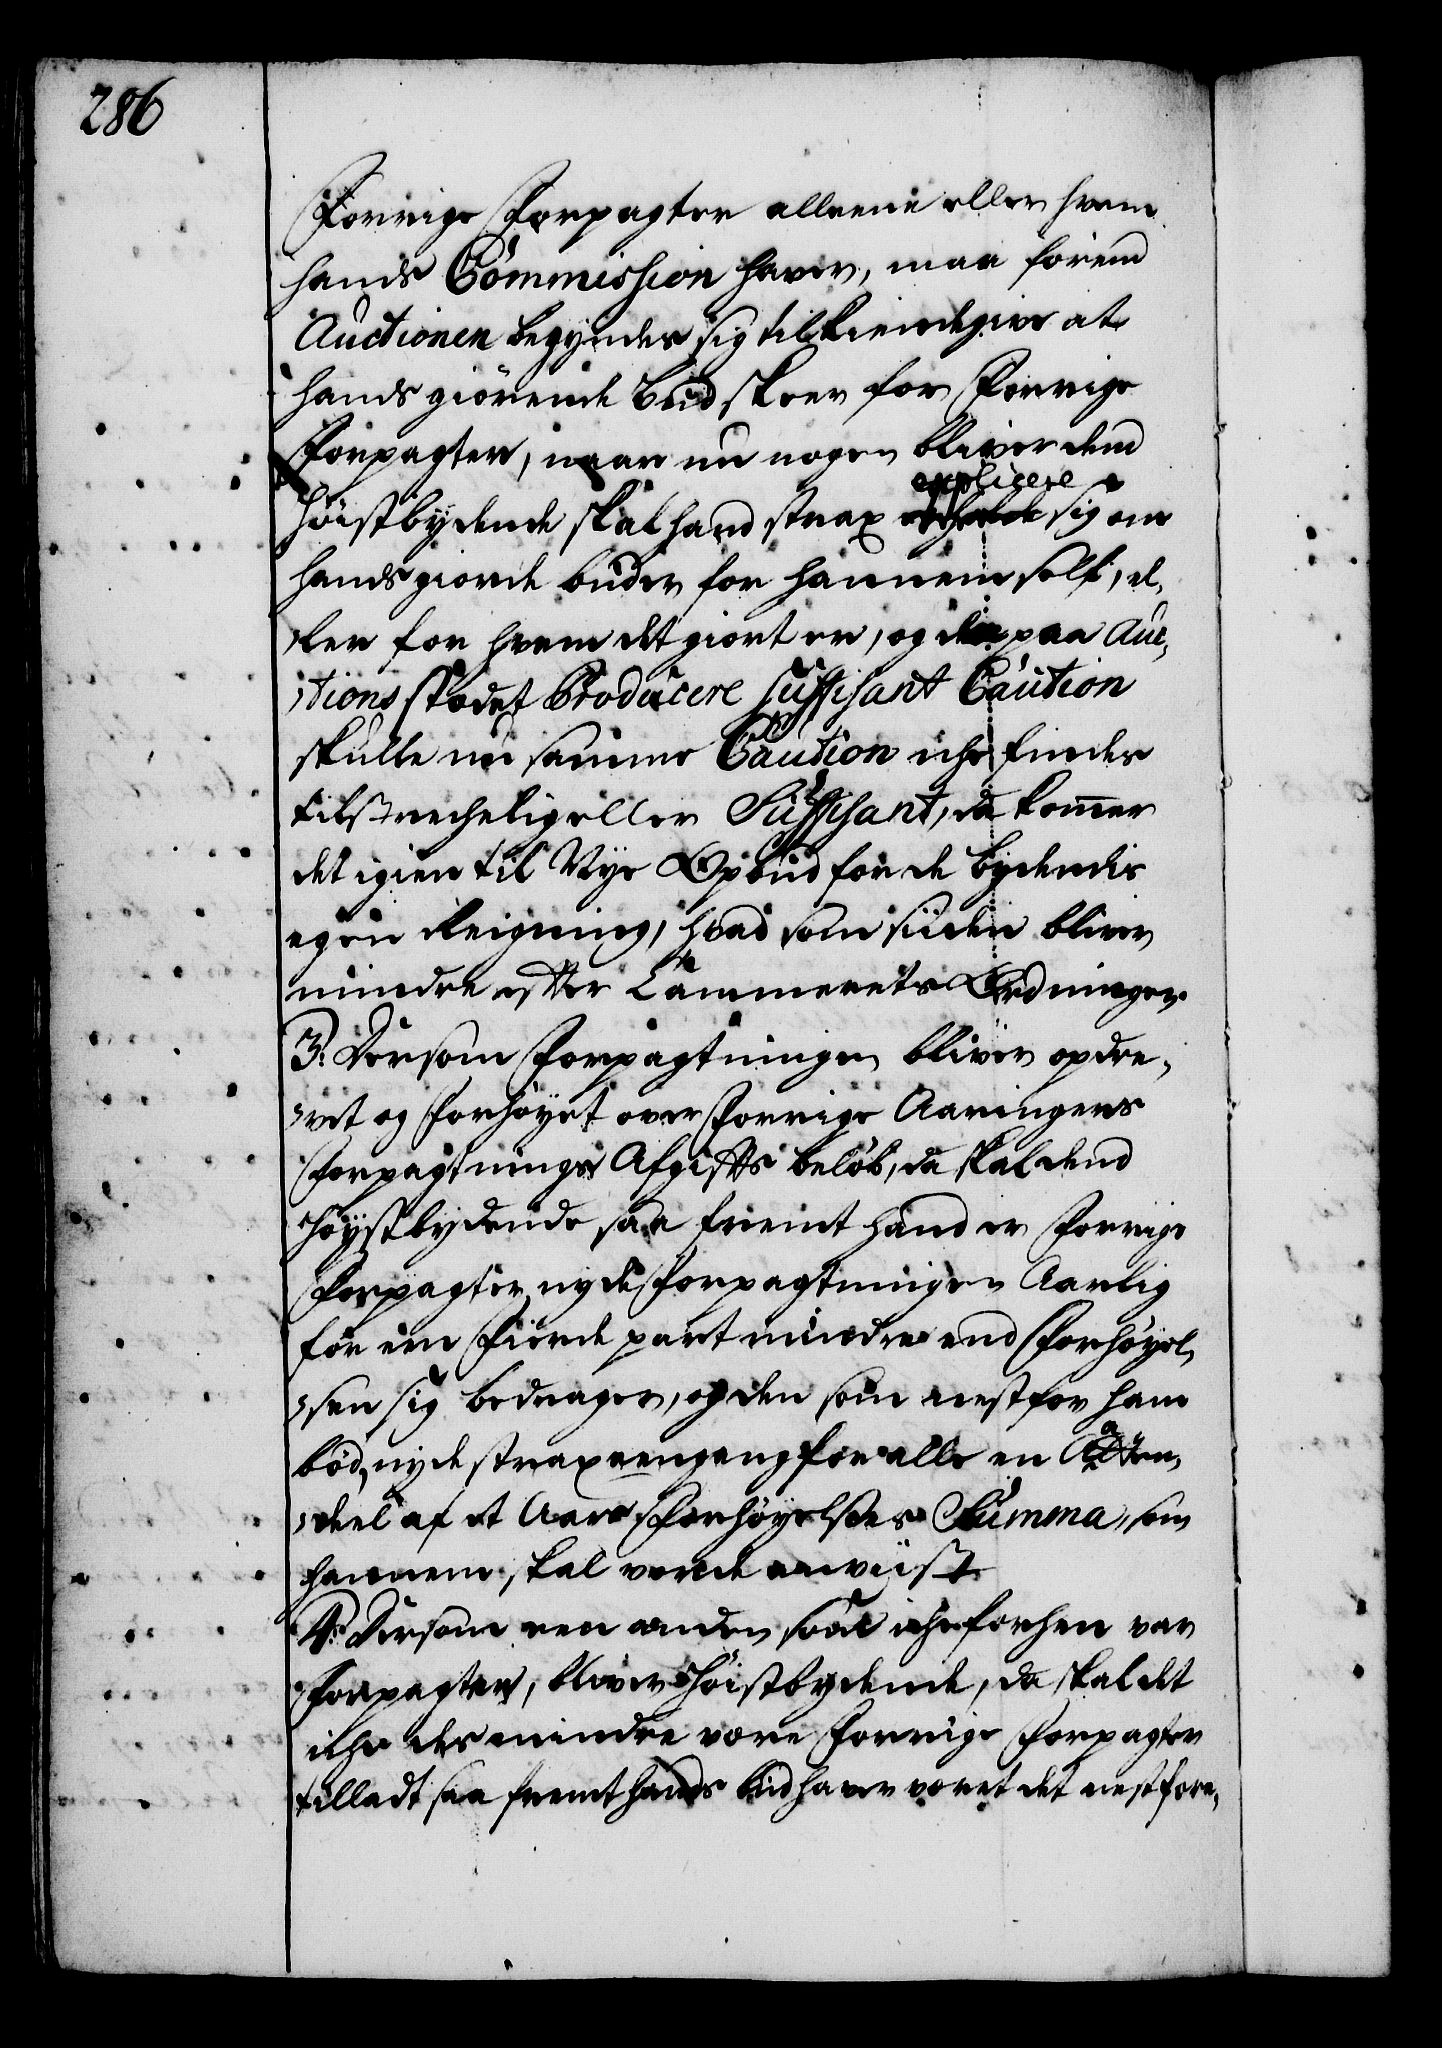 286
Forrige Forpagter alleene eller hvem
hands Commission haver, maa førend
Auctionen begyndes sig tilkiendegive at
hands giørende bud skeer for Forrige
Forpagter, naar nu nogen bliver dend
explicere
høistbydende skal hand strax sig om
hands giorde buder for hannem self, el,
ler for hvem det giort er, og der paa Auc,
tions stædet Producere suffisant Caution
skulle nu samme Caution iche findes
tilstrechelig eller Suffisant, da kommer
det igien til Nye Opbud for de bydendis
egen Reigning, hvad som siiden bliver
mindre efter Cammerets Ordninger.
3: Dersom Forpagtningen bliver opdre,
vet og Forhøyet over Forrige Aaringers
Forpagtnings Afgifts beløb, da skal dend
Høystbydende saa fremt hand er Forrige
Forpagter, nyde Forpagtningen Aarlig
for een Fierde part mindre end Forhøyel,
sen sig bedrager, og den som nest for ham
bød, nyde strax eengang for alle en Aatten,
deel af et Aars Forhøyelses Summa, som
hannem skal vorde anviist
4: Dersom een anden som iche forhen var
Forpagter, bliver Høistbydende, da skal det
iche des mindre være Forrige Forpagter
tilladt saa fremt hands bud haver været det nestfore,